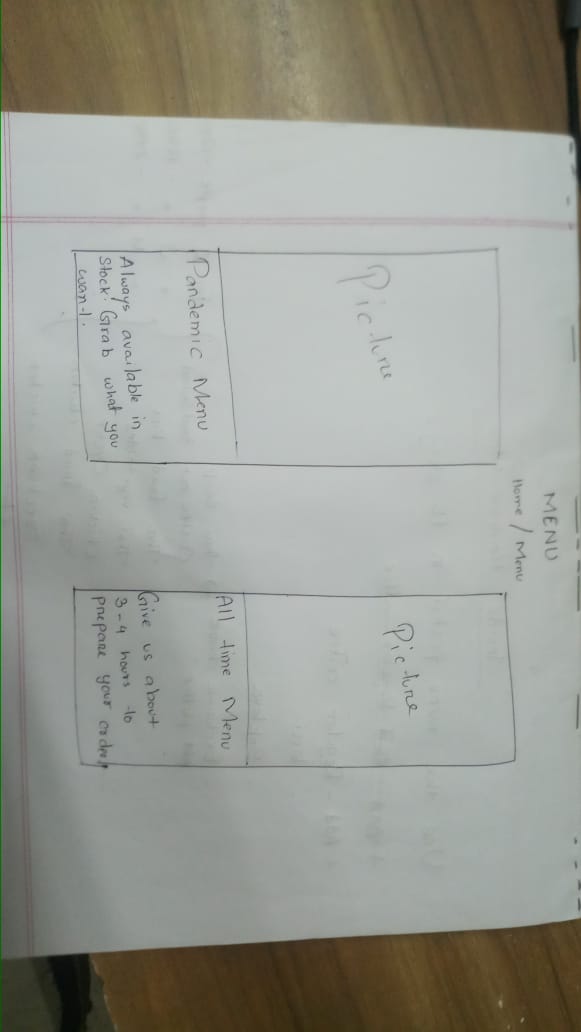 MENU
Home / Menu
Picture
Pandemic Menu
Always available in
stock! Grab what you
want.
Picture
All time Menu
Give us about
3-4 hours to
prepare your order.